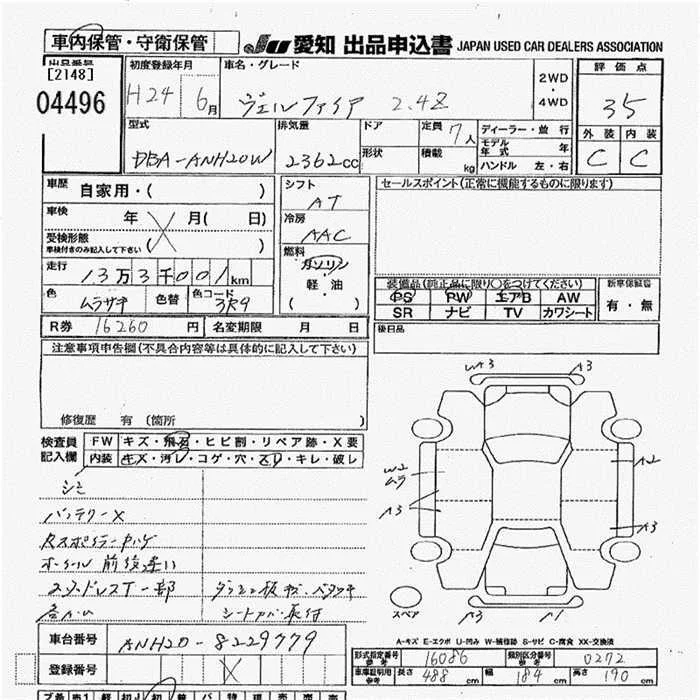 車内保管・守衛保管
JU 愛知 出品申込書 JAPAN USED CAR DEALERS ASSOCIATION
出品番号
[2148]
04496
初度登録年月
H24 6月
車名・グレード
ヴェルファイア 2.4Z
2WD
・
4WD
評価点
3.5
外装 内装
C C
型式
DBA-ANH20W
排気量
2362cc
ドア
形状
定員 7人
積載 kg
ディーラー・並行
モデル年式 年
ハンドル 左・右
車歴 自家用・( )
車検 年 月( 日)
受検形態
車検付きのみ記入して下さい ( )
走行 13万3千001km
色 ムラサキ 色替 色コード 3R9
シフト
AT
冷房
AAC
燃料
ガソリン
・
軽・油
( )
セールスポイント(正常に機能するものに限ります)
装備品(純正品に限り○をつけてください)
PS RW エアB AW
SR ナビ TV カワシート
新車保証書
有・無
R券 16260円 名変期限 月 日
後日品
注意事項申告欄(不具合内容等は具体的に記入して下さい)
修復歴 有 (箇所 )
検査員
記入欄
FW キズ・飛石・ヒビ割・リペア跡・X要
内装 キズ・汚レ・コゲ・穴・スリ・キレ・破レ
シミ
バッテリーX
ホイール 前後違い
シートカバー取付
WA3 A3
W2
ムラ
A3
A2
A3
スペア
A3 A1
A-キズ E-エクボ U-凹み W-補修跡 S-サビ C-腐食 XX-交換済
車台番号 ANH20-8229779
登録番号
形式指定番号
参考
16086
類別区分番号
参考
0272
車庫証明用
参考
長さ 488cm 幅 184cm 高さ 190cm